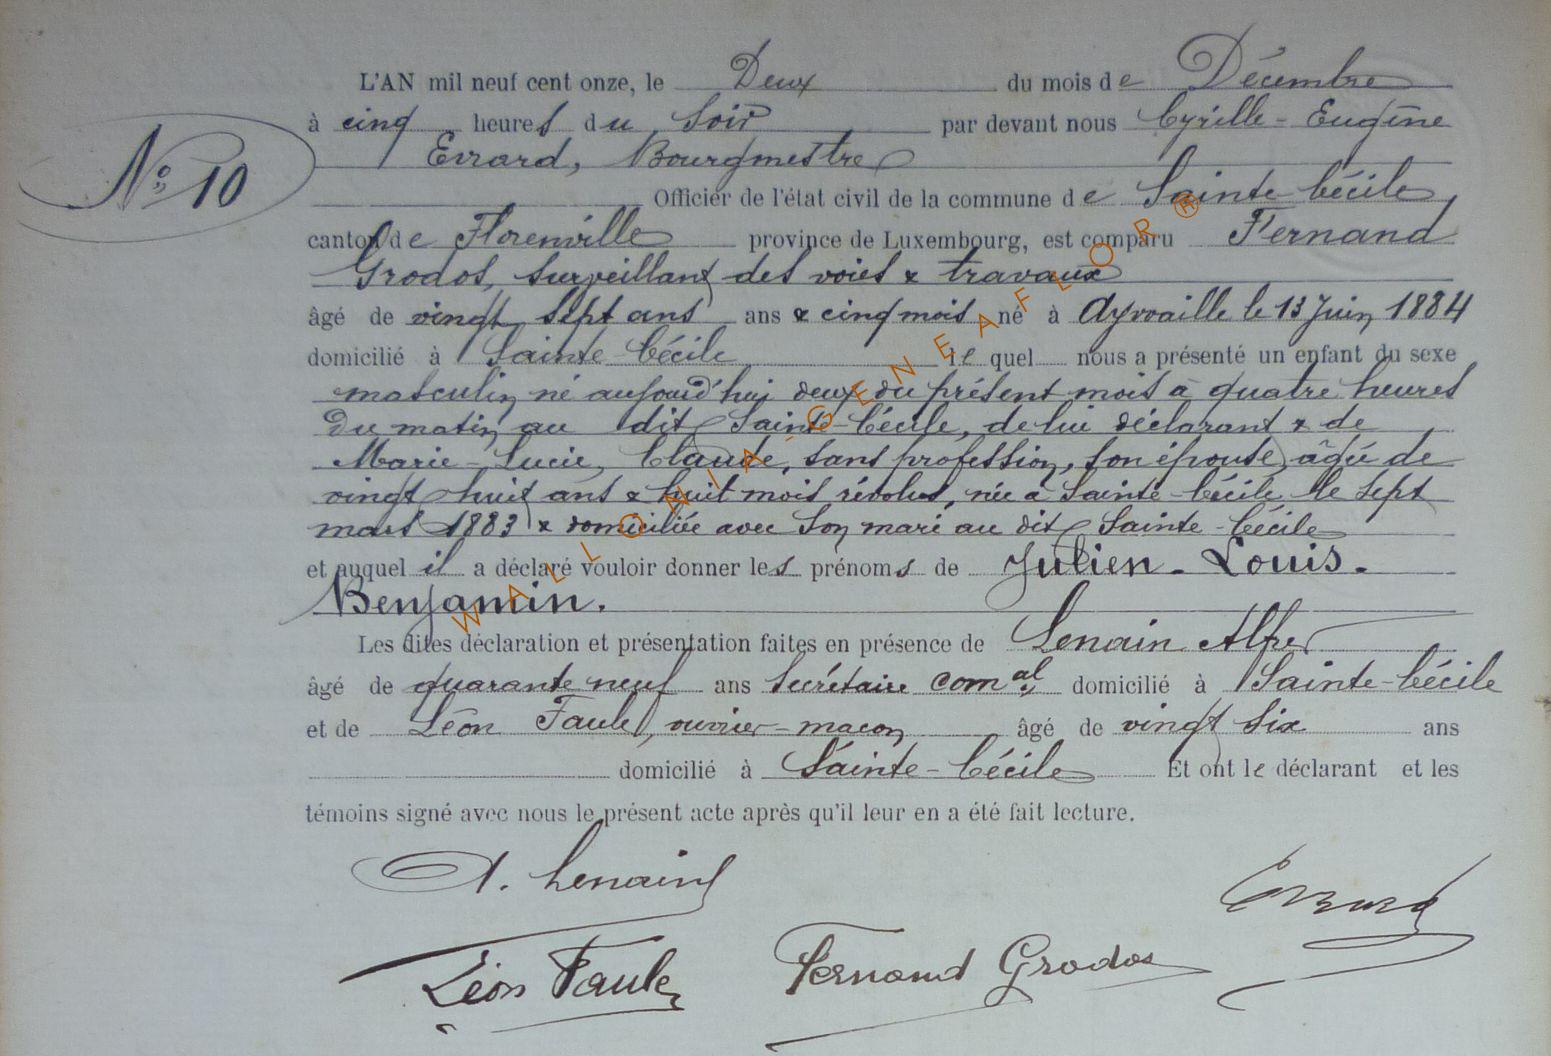 L'AN mil neuf cent onze, le Deux du mois de Décembre
à cinq heures du Soir par devant nous Cyrille-Eugène
Evrard, Bourgmestre
N° 10
Officier de l'état civil de la commune de Sainte Cécile
canton de Florenville province de Luxembourg, est comparu Fernand
Grodos, surveillant des voies & travaux
âgé de vingt sept ans ans & cinq mois né à Ayvaille le 13 Juin 1884
domicilié à Sainte-Cécile le quel nous a présenté un enfant du sexe
masculin né aujourd'hui deux du présent mois à quatre heures
du matin au dit Sainte-Cécile, de lui déclarant & de
Marie-Lucie, Claude, sans profession, son épouse, âgée de
vingt huit ans & huit mois révolus, née à Sainte-Cécile le sept
mars 1883 & domiciliée avec son mari au dit Sainte-Cécile
et auquel il a déclaré vouloir donner les prénoms de Julien-Louis-
Benjamin.
Les dites déclaration et présentation faites en présence de Lenain Alfred
âgé de quarante neuf ans Secrétaire comal domicilié à Sainte-Cécile
et de Léon Faule, ouvrier-maçon âgé de vingt six ans
domicilié à Sainte-Cécile Et ont le déclarant et les
témoins signé avec nous le présent acte après qu'il leur en a été fait lecture.
A. Lenain
Evrard
Léon Faule
Fernand Grodos
WALLONIA-GENEAFLOR®